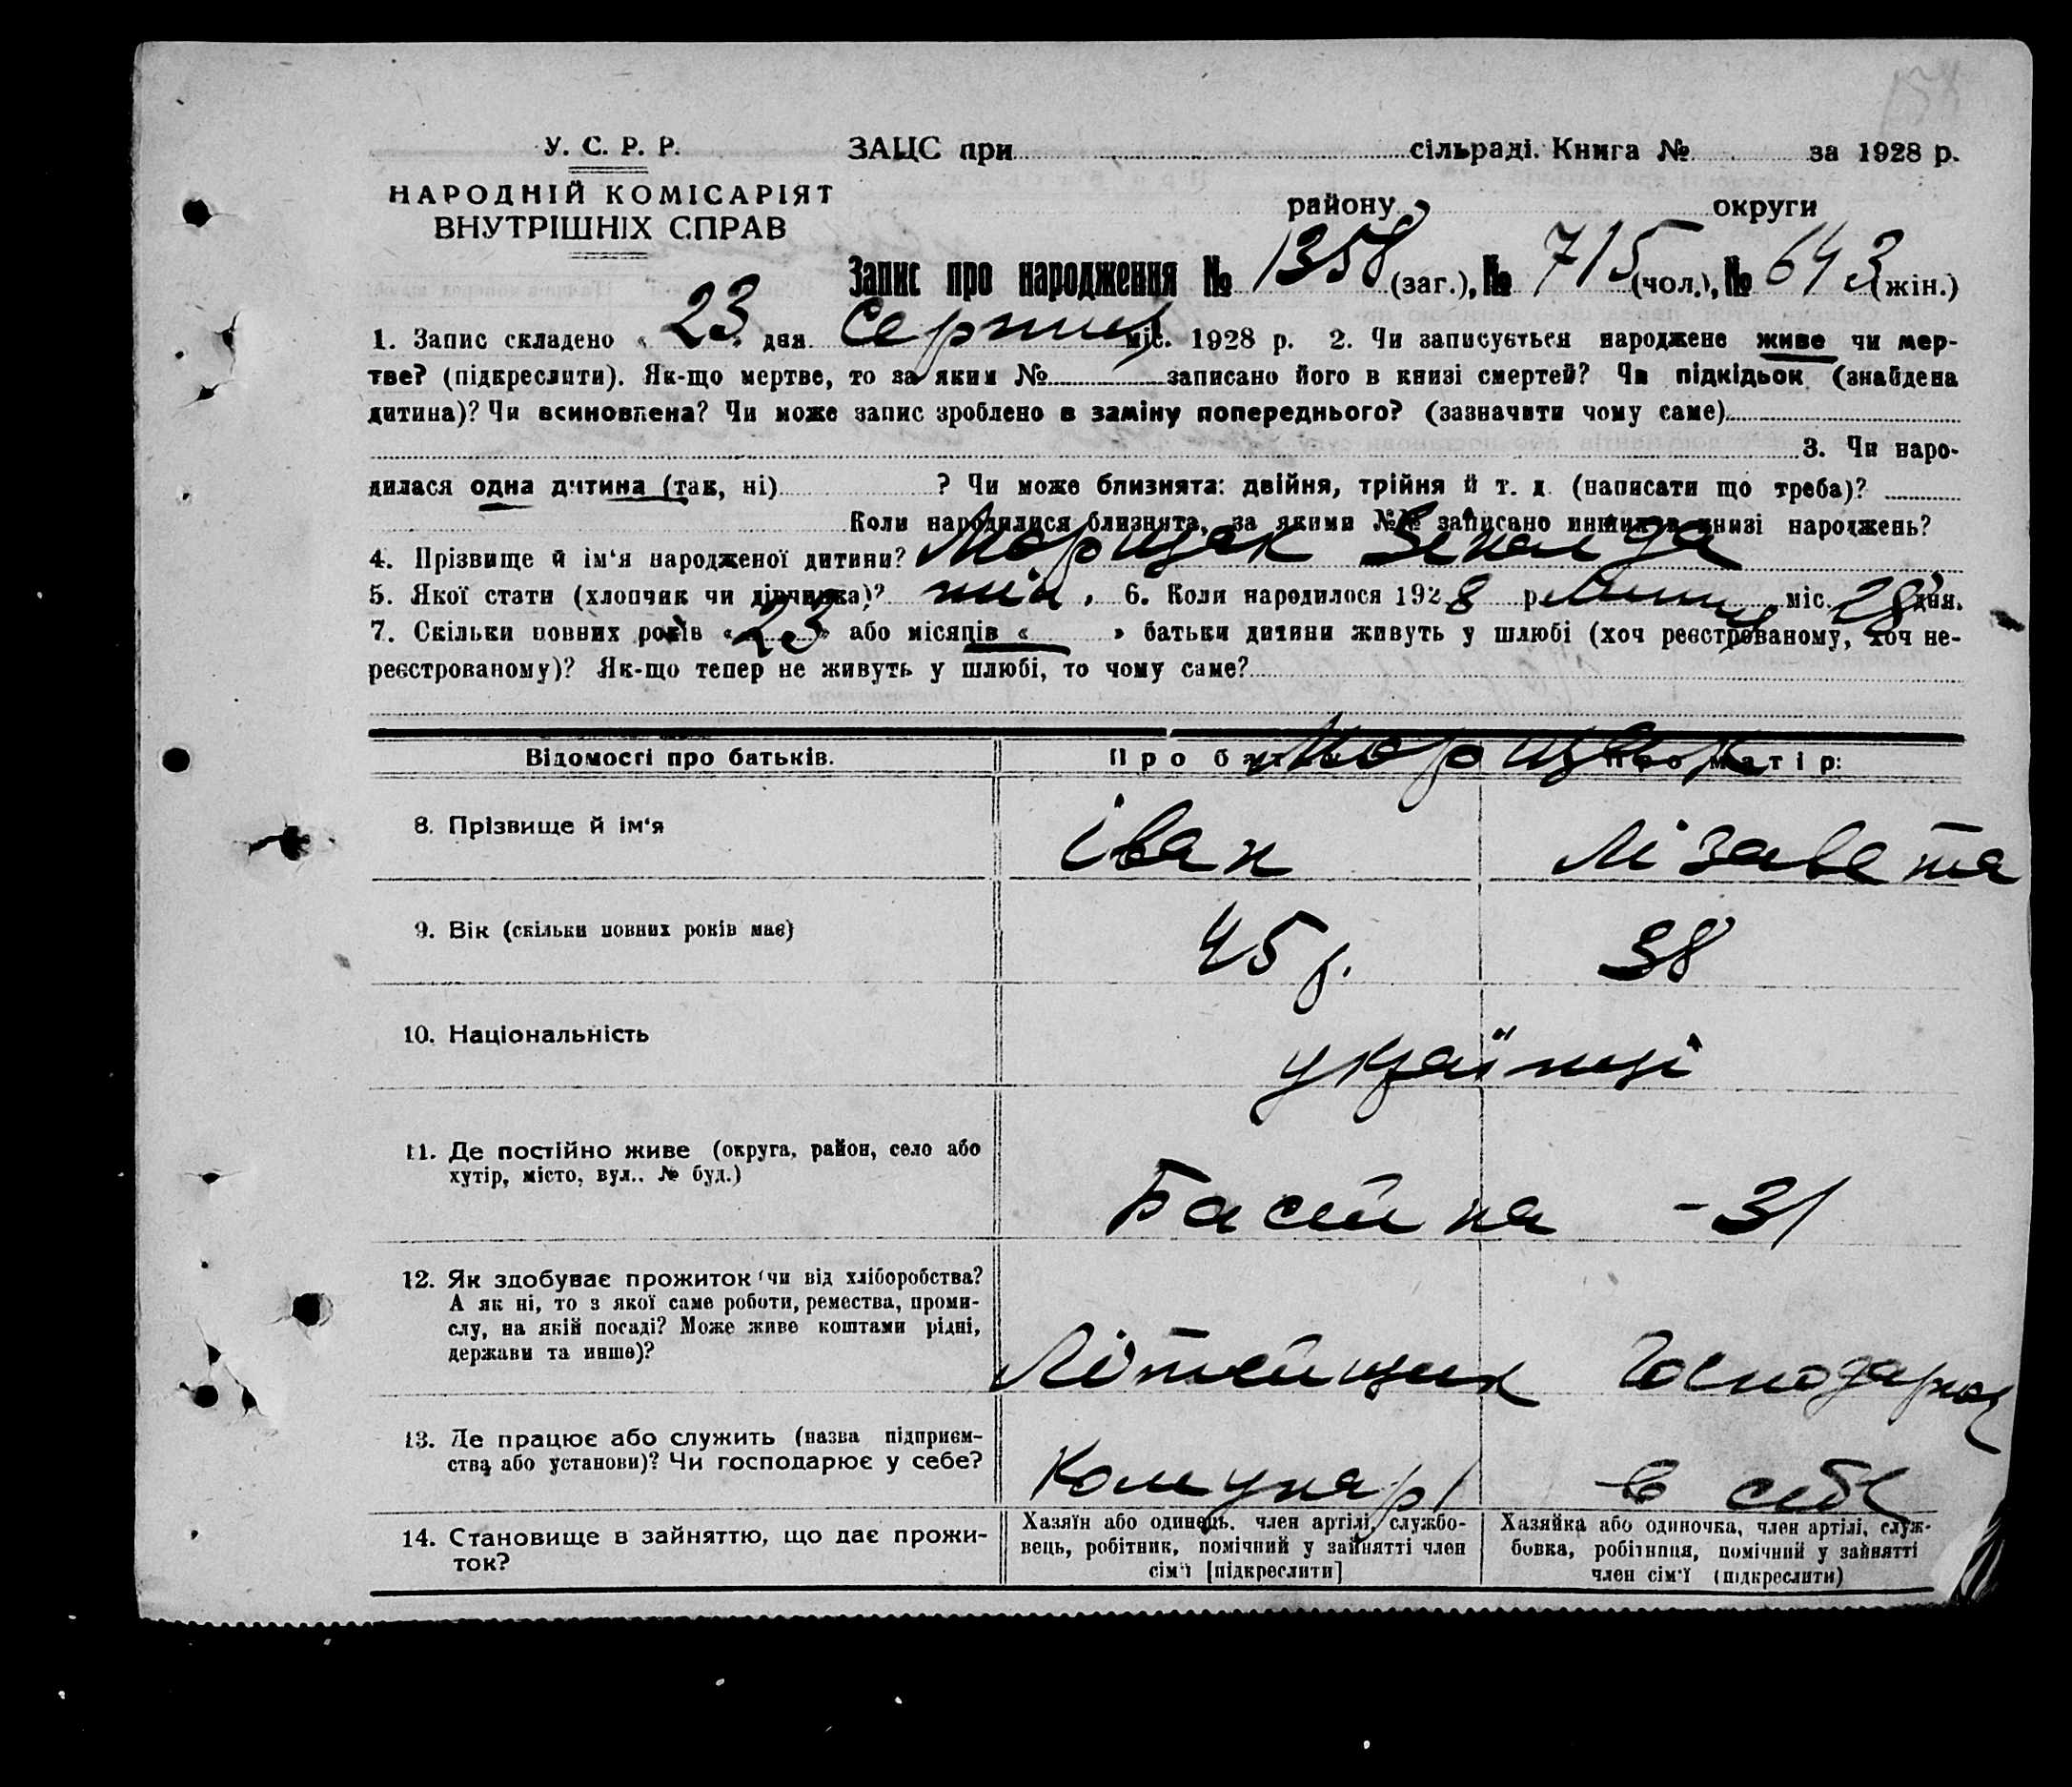 У. С. Р. Р.
НАРОДНІЙ КОМІСАРІЯТ
ВНУТРІШНІХ СПРАВ
ЗАЦС при сільраді. Книга № за 1928 р.
району округи
Запис про народження № 1358 (заг.), № 715 (чол.), № 643 (жін.)
1. Запис складено « 23 » дня Серпня міс. 1928 р. 2. Чи записується народжене живе чи мер-
тве? (підкреслити). Як-що мертве, то за яким № записано його в книзі смертей? Чи підкідьок (знайдена
дитина)? Чи всиновлена? Чи може запис зроблено в заміну попереднього? (зазначити чому саме)
3. Чи наро-
дилася одна дитина (так, ні) ? Чи може близнята: двійня, трійня й т. д. (написати що треба)?
Коли народилися близнята, за якими №№ записано инших в книзі народжень?
4. Прізвище й ім‘я народженої дитини? Зінаїда
5. Якої стати (хлопчик чи дівчинка)? жін. 6. Коли народилося 1928 р. Липня міс. 28 дня.
7. Скільки повних років « 23 » або місяців « » батьки дитини живуть у шлюбі (хоч реєстрованому, хоч не-
реєстрованому)? Як-що тепер не живуть у шлюбі, то чому саме?
Відомості про батьків. Про батька Про матір:
8. Прізвище й ім‘я Іван Лізавета
9. Вік (скільки повних років має) 45 р. 38
10. Національність українці
11. Де постійно живе (округа, район, село або
хутір, місто, вул.. № буд.)
Басейна - 31
12. Як здобуває прожиток (чи від хліборобства?
А як ні, то з якої саме роботи, ремества, проми-
слу, на якій посаді? Може живе коштами рідні,
держави та инше)?
Літейщик Господарює
13. Де працює або служить (назва підприєм-
ства або установи)? Чи господарює у себе?
Комунарі в себе
14. Становище в зайняттю, що дає прожи-
ток?
Хазяїн або одинець, член артілі, службо-
вець, робітник, помічний у зайнятті член
сім‘ї [підкреслити]
Хазяйка або одиночка, член артілі, служ-
бовка, робітниця, помічний у зайнятті
член сім‘ї (підкреслити)